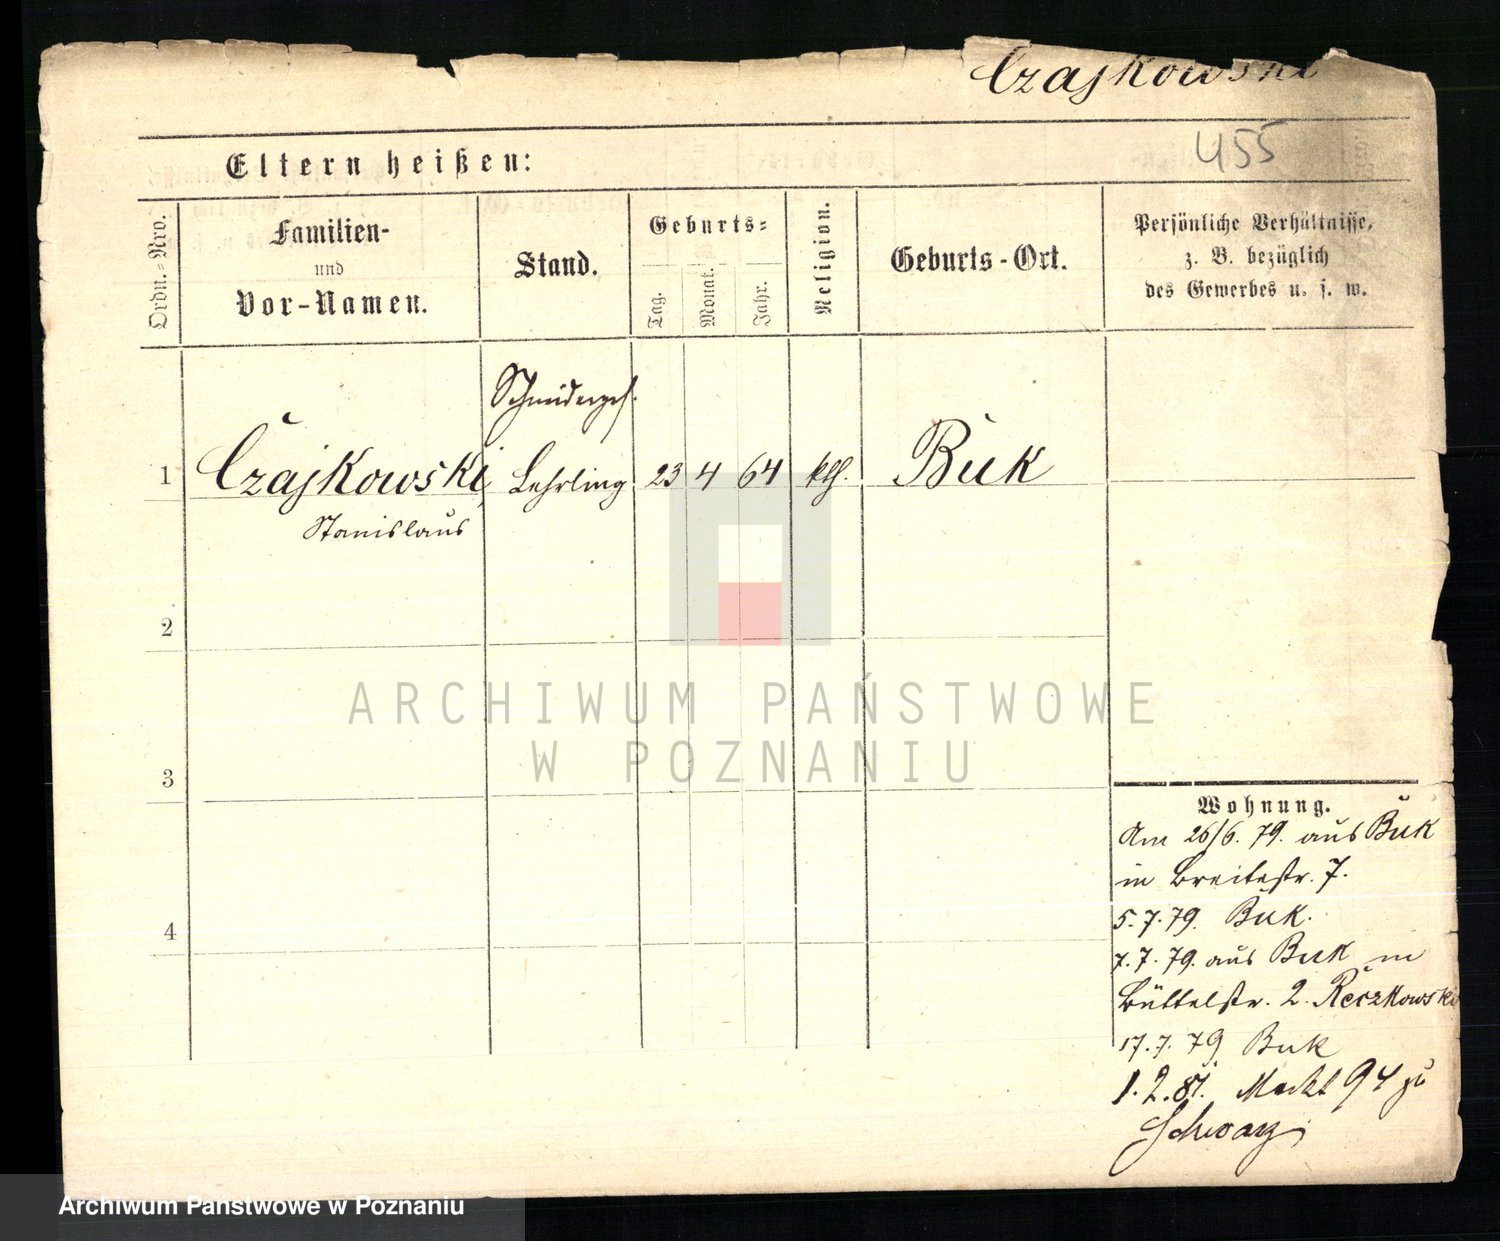 Czajkowski
455
Eltern heißen:
Ordn.-Nro.
Familien-
und
Vor-Namen.
Stand.
Geburts-
Tag.
Monat.
Jahr.
Religion.
Geburts-Ort.
Persönliche Verhältnisse,
z. B. bezüglich
des Gewerbes u. s. w.
1
Czajkowski,
Stanislaus
Schneiderges.
Lehrling
23 4 64 kth. Buk
2
3
4
Wohnung.
Am 26/6. 79. aus Buk
in Breitestr. 7.
5. 7. 79. Buk.
7. 7. 79. aus Buk in
Büttelstr. 2. Reczkowski
17. 7. 79 Buk
1. 2. 81. Markt 94 zu
Schwarz
ARCHIWUM PAŃSTWOWE
W POZNANIU
Archiwum Państwowe w Poznaniu